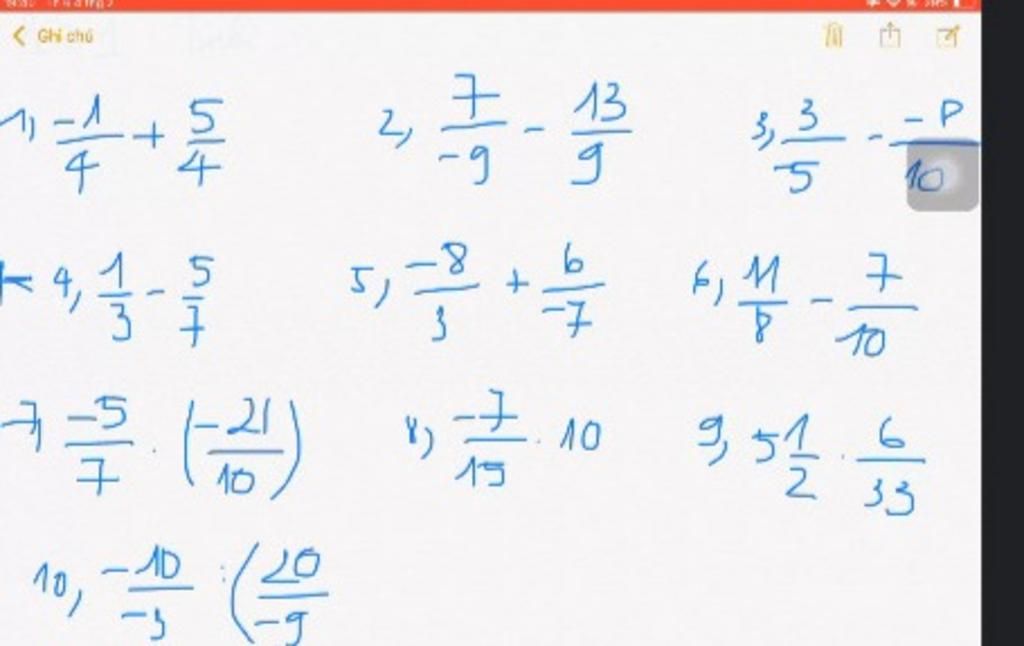 Ghi chú
1, -1/4 + 5/4 2, 7/-9 - 13/9 3, 3/-5 - -P/10
4, 1/3 - 5/7 5, -8/3 + 6/-7 6, 11/8 - 7/-10
7, -5/7 . (-21/10) 8, -7/15 . 10 9, 5 1/2 . 6/33
10, -10/-3 : (20/-9